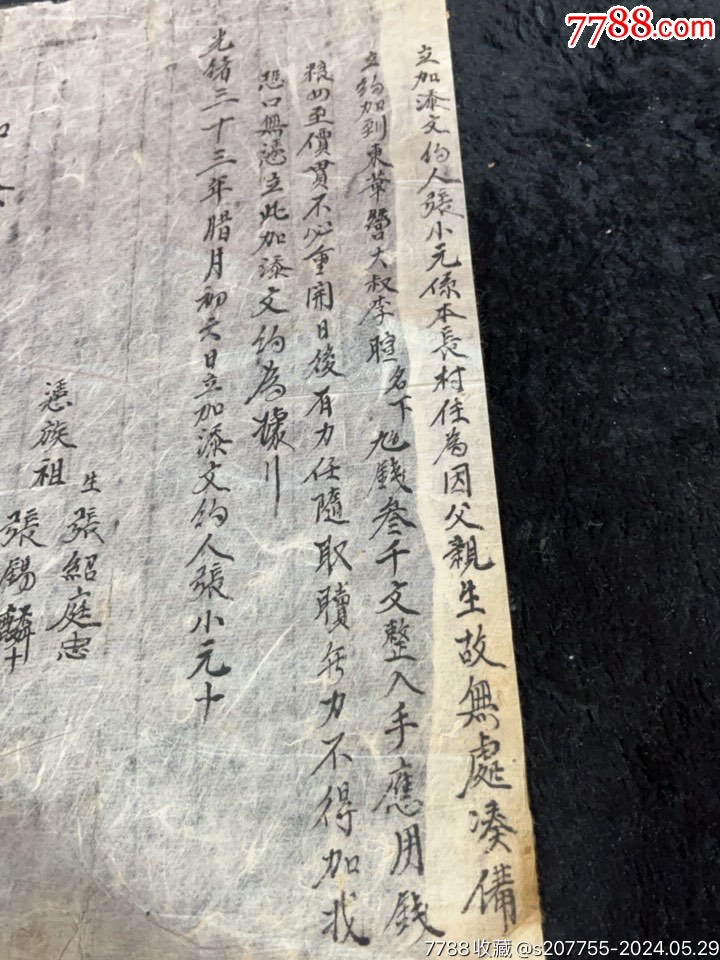 7788.com
立加添文約人張小元係本長村住為因父親生故無處湊備
立約加到東華營大叔李暄名下 旭錢叁千文整入手應用錢
粮如至價貫不心重開日後有力任隨取贖無力不得加找
恐口無憑立此加添文約為據
光緒三十三年腊月初六日立加添文約人張小元十
憑族祖
生張紹庭忠
張錫麟十
7788收藏@s207755-2024.05.29